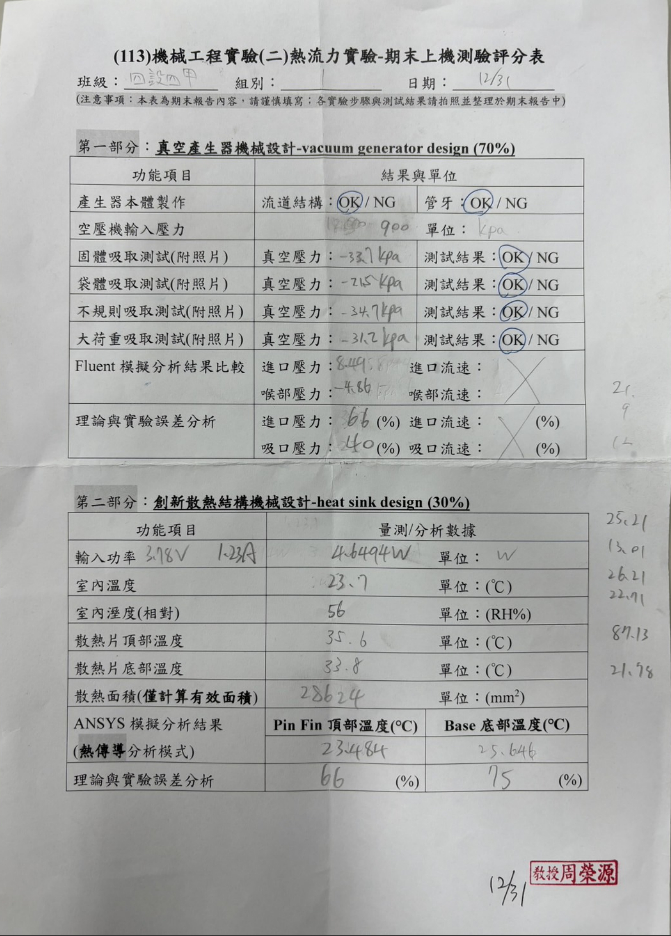 (113)機械工程實驗(二)熱流力實驗-期末上機測驗評分表
班級：四設四甲 組別：1 日期：12/31
(注意事項：本表為期末報告內容，請謹慎填寫；各實驗步驟與測試結果請拍照並整理於期末報告中)
第一部分：真空產生器機械設計-vacuum generator design (70%)
功能項目 結果與單位
產生器本體製作 流道結構：OK / NG 管牙：OK / NG
空壓機輸入壓力 900 單位：kpa
固體吸取測試(附照片) 真空壓力：-33.7 kpa 測試結果：OK / NG
袋體吸取測試(附照片) 真空壓力：-21.5 kpa 測試結果：OK / NG
不規則吸取測試(附照片) 真空壓力：-34.7 kpa 測試結果：OK / NG
大荷重吸取測試(附照片) 真空壓力：-31.2 kpa 測試結果：OK / NG
Fluent 模擬分析結果比較 進口壓力： 進口流速：
喉部壓力：-4.86 喉部流速：
理論與實驗誤差分析 進口壓力：66 (%) 進口流速： (%)
吸口壓力：40 (%) 吸口流速： (%)
第二部分：創新散熱結構機械設計-heat sink design (30%)
25.21
功能項目 量測/分析數據
13.01
輸入功率 3.78V 1.23A 4.6494W 單位：W
26.21
室內溫度 23.7 單位：(℃)
22.71
室內溼度(相對) 56 單位：(RH%)
87.13
散熱片頂部溫度 35.6 單位：(℃)
散熱片底部溫度 33.8 單位：(℃)
21.78
散熱面積(僅計算有效面積) 28624 單位：(mm²)
ANSYS 模擬分析結果 Pin Fin 頂部溫度(℃) Base 底部溫度(℃)
(熱傳導分析模式) 23.484 25.646
理論與實驗誤差分析 66 (%) 75 (%)
12/31 教授周榮源